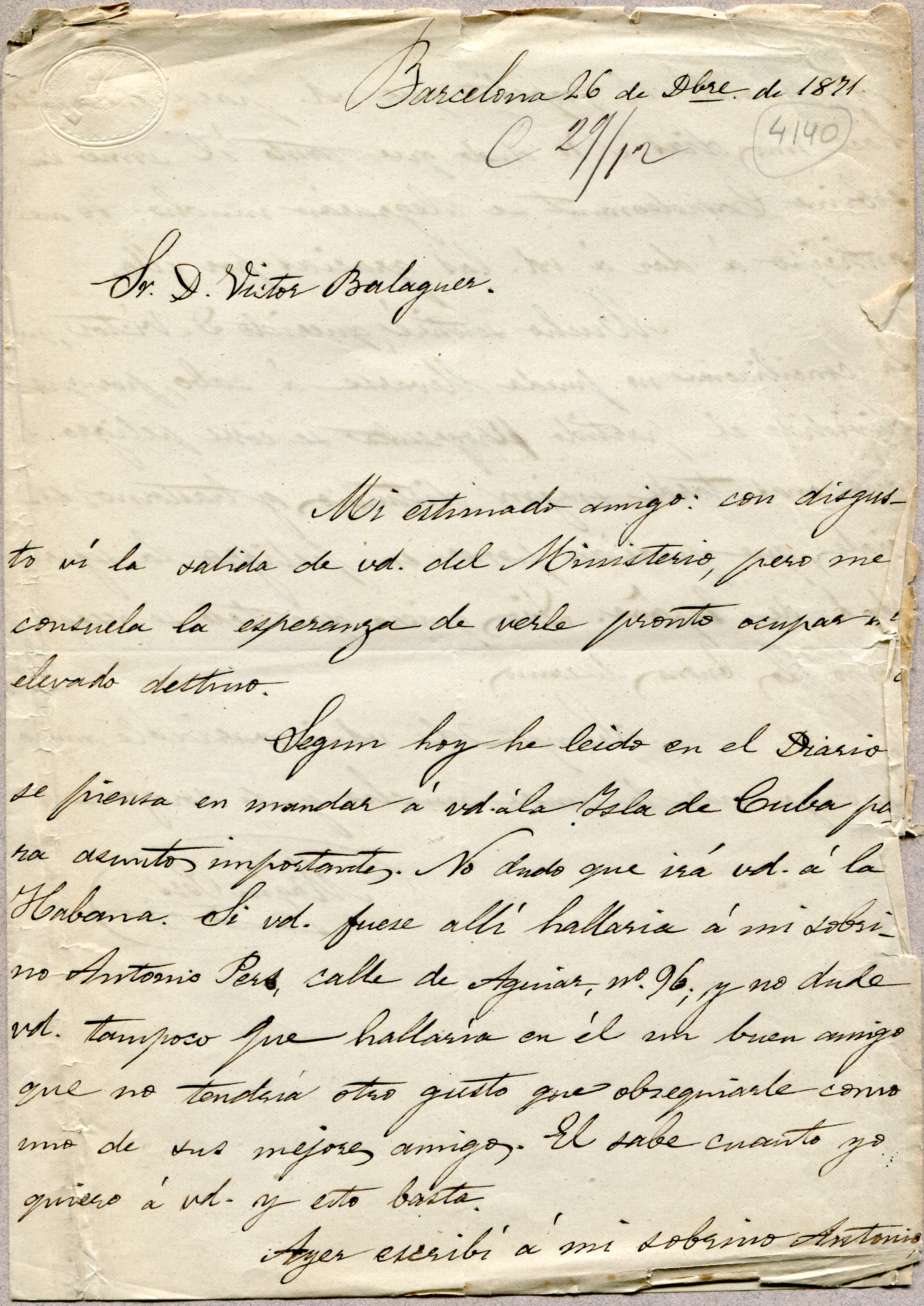 Barcelona 26 de Dbre. de 1871
C 29/12
4140
Sr. D. Victor Balaguer.
Mi estimado amigo: con disgus-
to ví la salida de vd. del Ministerio, pero me
consuela la esperanza de verle pronto ocupar
elevado destino.
Segun hoy he leido en el Diario
se piensa en mandar á vd. á la Isla de Cuba pa-
ra asuntos importantes. No dudo que irá vd. á la
Habana. Si vd. fuese allí hallaria á mi sobri-
no Antonio Pers, calle de Aguiar, nº. 96, y no dude
vd. tampoco que hallaría en él un buen amigo
que no tendría otro gusto que obsequiarle como
uno de sus mejores amigos. El sabe cuanto yo
quiero á vd. y esto basta.
Ayer escribí á mi sobrino Antonio,